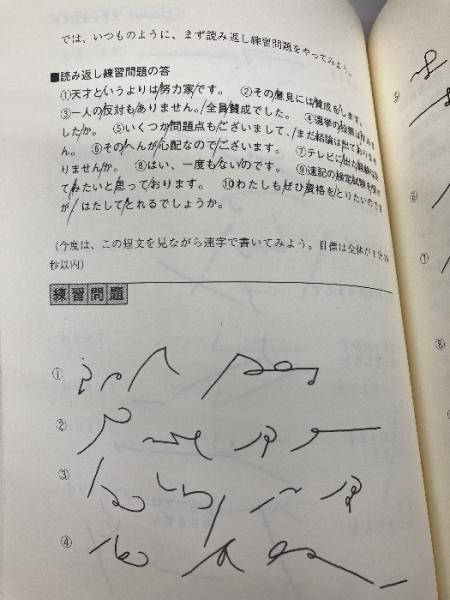 では、いつものように、まず読み返し練習問題をやってみよう。
■読み返し練習問題の答
①天才と/いうよりは/努力家/です。②その/意見には/賛成を/します。
③一人の/反対も/ありません。/全員/賛成でした。④選挙の/投票は
した/か。⑤いくつか/問題点も/ございまして、/まだ/結論は/出ており
ん。⑥その/へんが/心配なので/ございます。⑦テレビに/出た
りません/か。⑧はい、一度も/ないのです。⑨速記の/検定試験を/受け
て/みたいと/思って/おります。⑩わたしも/ぜひ/資格を/とりたいのです
が/はたして/とれるでしょうか。
(今度は、この短文を見ながら速字で書いてみよう。目標は全体が1分
秒以内)
練習問題
①
②
③
④
⑤
⑥
⑦
⑧
⑨